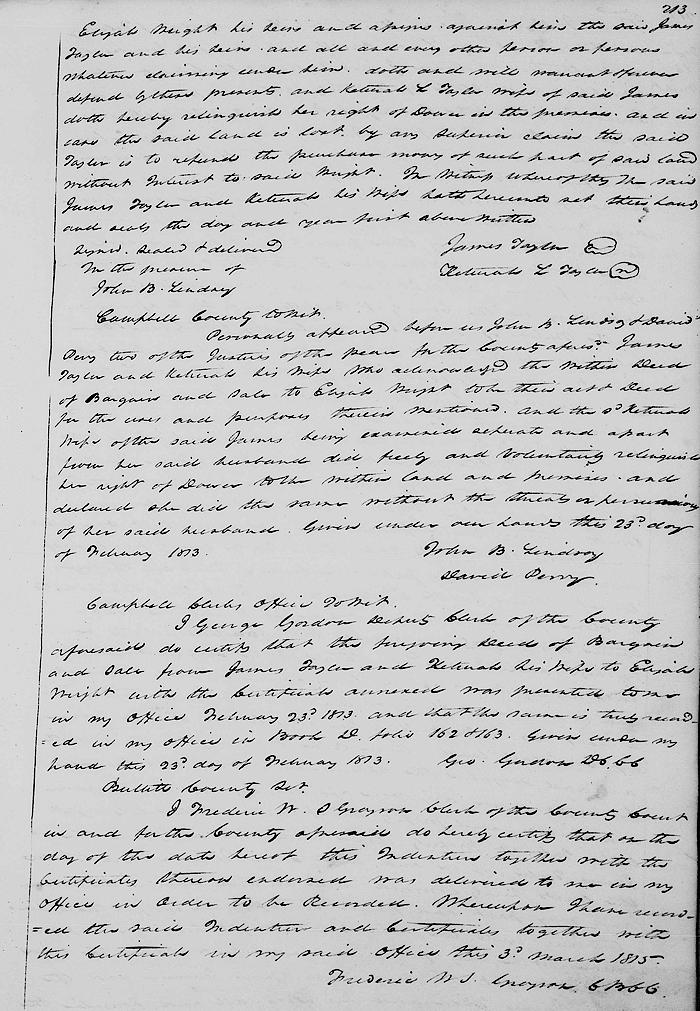 213
Elijah Wright his heirs and assigns against him the said James
Taylor and his heirs and all and every other person or persons
whatever claiming under him doth and will warrant & forever
defend by these presents, and Keturah L Taylor wife of said James
doth hereby relinquish her right of Dower in the premises. And in
case the said land is lost by any superior claim the said
Taylor is to refund the purchase money of such part of said land
without Interest to said Wright. In Witness whereof they the said
James Taylor and Keturah his Wife hath hereunto set their hands
and seals the day and year first above written
Signed. Sealed & delivered
In the presence of
John B. Lindsey
James Taylor
Keturah L Taylor
Campbell County to wit.
Personally appeared before us John B. Lindsey & David
Perry two of the Justices of the peace for the County afores.d James
Taylor and Keturah his Wife who acknowledged the within Deed
of Bargain and Sale to Elijah Wright to be their act & Deed
for the uses and purposes therein mentioned. and the sd Keturah
Wife of the said James being examined seperate and apart
from her said husband did freely and Voluntarily relinquish
her right of Dower to the within land and premises. and
declared she did the same without the threats or persuasions
of her said husband. Given under our hands this 23d day
of February 1813.
John B. Lindsey
David Perry
Campbell Clerks Office To Wit.
I George Gordon Deputy Clerk of the County
aforesaid do certify that the foregoing Deed of Bargain
and Sale from James Taylor and Keturah his Wife to Elijah
Wright with the Certificate annexed was presented to me
in my Office February 23d 1813. and that the same is truly record-
=ed in my office in Book D. folio 162 & 163. Given under my
hand this 23d day of February 1813. Geo. Gordon
Bullitt County Sct.
I Frederic W. S Grayson Clerk of the County Court
in and for the County aforesaid do hereby certify that on the
day of the date hereof this Indenture together with the
Certificates thereon endorsed was delivered to me in my
Office in Order to be Recorded. Whereupon I have record-
=ed the said Indenture and Certificates together with
this Certificate in my said Office this 3d March 1815.
Frederic W. S. Grayson